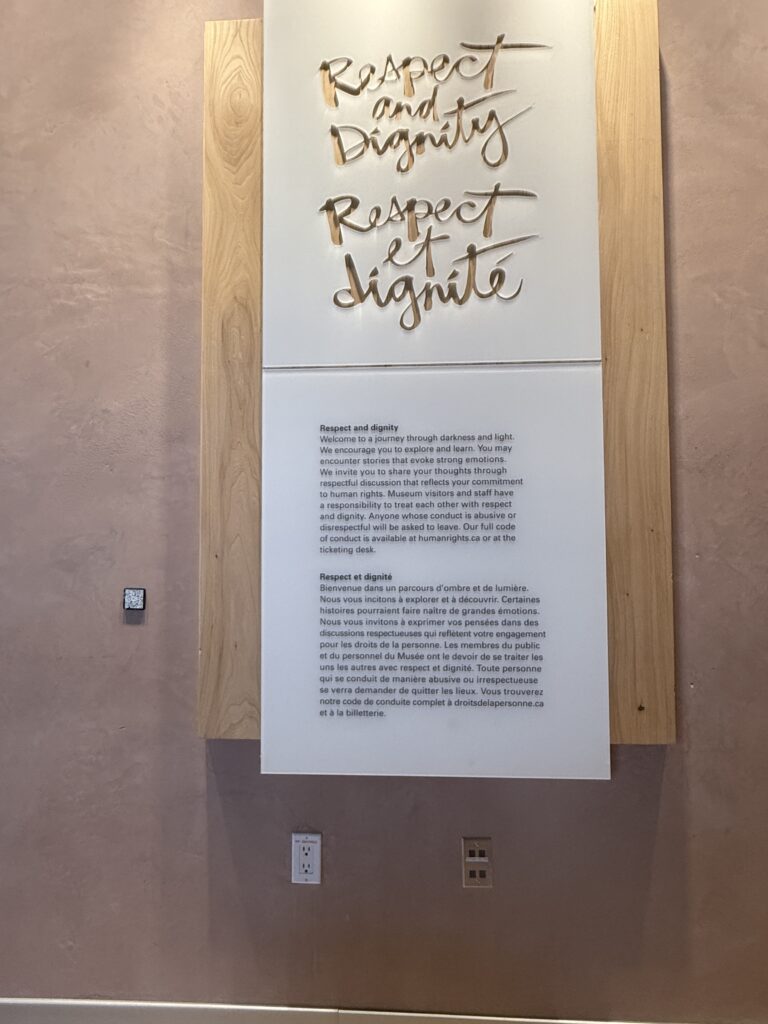 Respect
and
Dignity
Respect
et
dignité
Respect and dignity
Welcome to a journey through darkness and light.
We encourage you to explore and learn. You may
encounter stories that evoke strong emotions.
We invite you to share your thoughts through
respectful discussion that reflects your commitment
to human rights. Museum visitors and staff have
a responsibility to treat each other with respect
and dignity. Anyone whose conduct is abusive or
disrespectful will be asked to leave. Our full code
of conduct is available at humanrights.ca or at the
ticketing desk.
Respect et dignité
Bienvenue dans un parcours d'ombre et de lumière.
Nous vous incitons à explorer et à découvrir. Certaines
histoires pourraient faire naître de grandes émotions.
Nous vous invitons à exprimer vos pensées dans des
discussions respectueuses qui reflètent votre engagement
pour les droits de la personne. Les membres du public
et du personnel du Musée ont le devoir de se traiter les
uns les autres avec respect et dignité. Toute personne
qui se conduit de manière abusive ou irrespectueuse
se verra demander de quitter les lieux. Vous trouverez
notre code de conduite complet à droitsdelapersonne.ca
et à la billetterie.